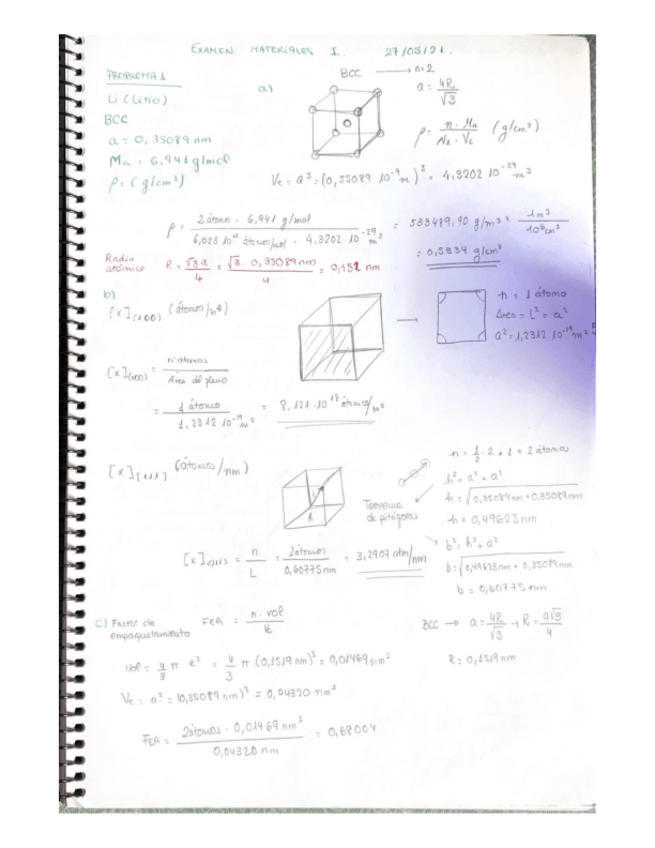 EXAMEN MATERIALES I. 27/05/21.
PROBLEMA 1
Li (Litio)
BCC
a = 0,35089 nm
Ma = 6,941 g/mol
ρ = (g/cm³)
a) BCC → n=2
a = 4R/√3
ρ = n · Ma / Na · Vc (g/cm³)
Vc = a³ = (0,35089 10⁻⁹ m)³ = 4,3202 10⁻²⁹ m³
ρ = 2 átomos · 6,941 g/mol / 6,023 10²³ átomos/mol · 4,3202 · 10⁻²⁹ m³ = 533489,90 g/m³ × 1m³/10⁶cm³
= 0,5334 g/cm³
Radio atómico R = √3 a / 4 = √3 · 0,35089 nm / 4 = 0,152 nm
b)
[x](100) (átomos/m²)
n = 1 átomo
Área = l² = a²
a² = 1,2312 · 10⁻¹⁹ m²
[x](100) = nº átomos / Área del plano
= 1 átomo / 1,2312 · 10⁻¹⁹ m² = 8,121 · 10¹⁸ átomos/m²
[x][111] (átomos/nm)
n = 1/2 · 2 + 1 = 2 átomos
Teorema de pitágoras
h² = a² + a²
h = √0,35089nm + 0,35089nm
h = 0,49623 nm
b² = h² + a²
b = √0,49623nm + 0,35089nm
b = 0,60775 nm
[x][111] = n / L = 2 átomos / 0,60775 nm = 3,2907 atm/nm
c) Factor de empaquetamiento FEA = n · vol / Vc
BCC → a = 4R/√3 → R = a√3/4
R = 0,1519 nm
Vol = 4/3 π R³ = 4/3 π (0,1519 nm)³ = 0,01469 nm³
Vc = a³ = (0,35089 nm)³ = 0,04320 nm³
FEA = 2 átomos · 0,01469 nm³ / 0,04320 nm = 0,68004